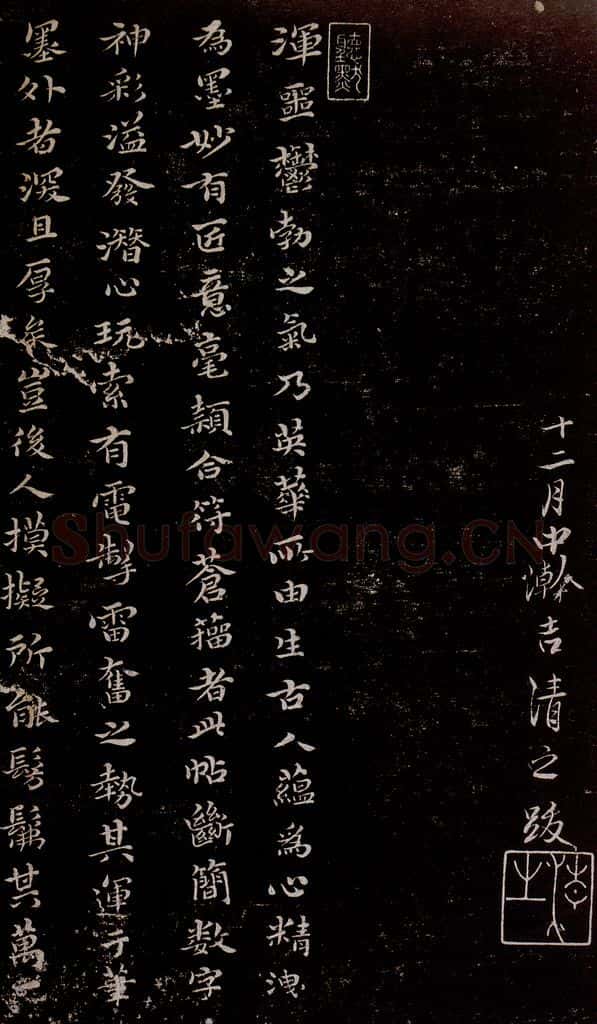 十二月中澣吉清之跋
渾噩鬱勃之氣乃英華所由生古人蘊為心精洩
為墨妙有匠意毫頴合符蒼籀者此帖斷簡數字
神彩溢發潛心玩索有電掣雷奮之勢其運于筆
墨外者深且厚矣豈後人摸擬所能髣髴其萬一
Shufawang.CN